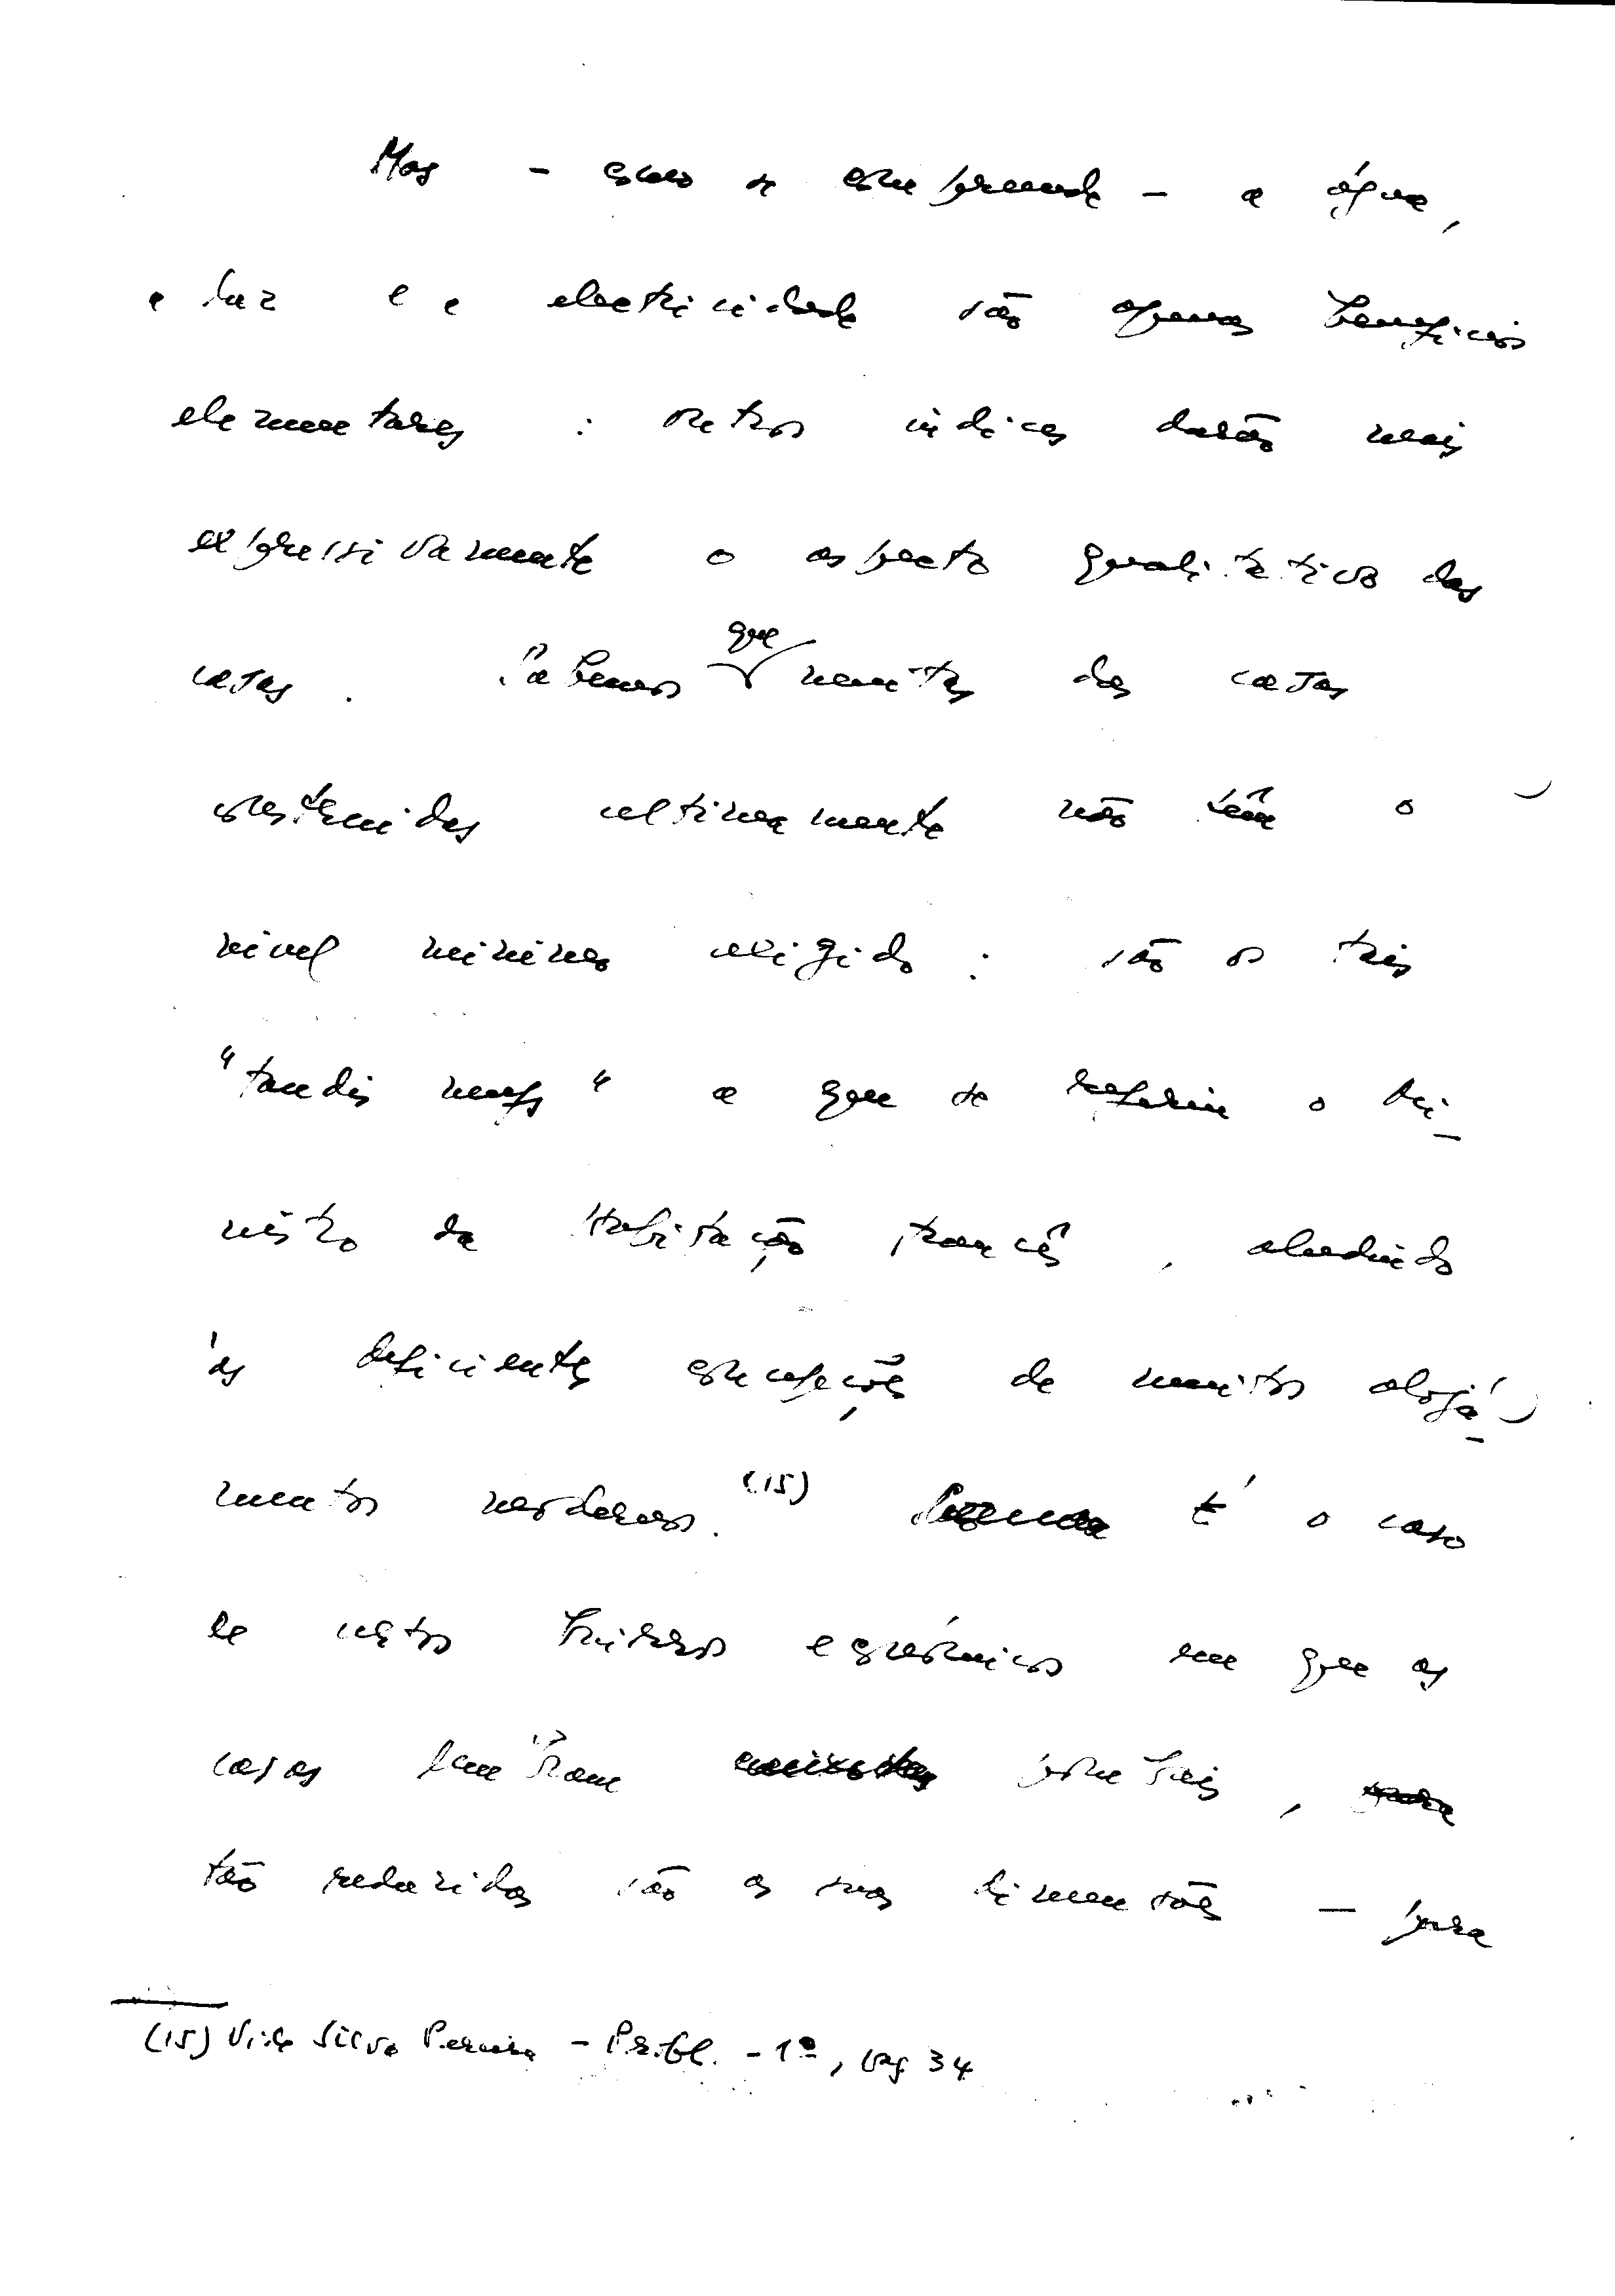 Mas - como se compreende - a água,
a luz e a electricidade são apenas benefícios
elementares : outros índices darão mais
expressivamente o aspecto qualitativo das
casas. Sabemos que muitas das casas
construidas ultimamente não têm o
nível mínimo exigido : são os três
"taudis neufs" a que se referiu o Mi-
nistro da Habitação francês, aludindo
às deficientes concepções de muitos aloja-
mentos modernos. (15) É o caso
de certos bairros económicos em que as
casas lembram pombais,
tão reduzidas são as suas dimensões - para
(15) Vide Silva Pereira - Probl. - 1º, pag 34